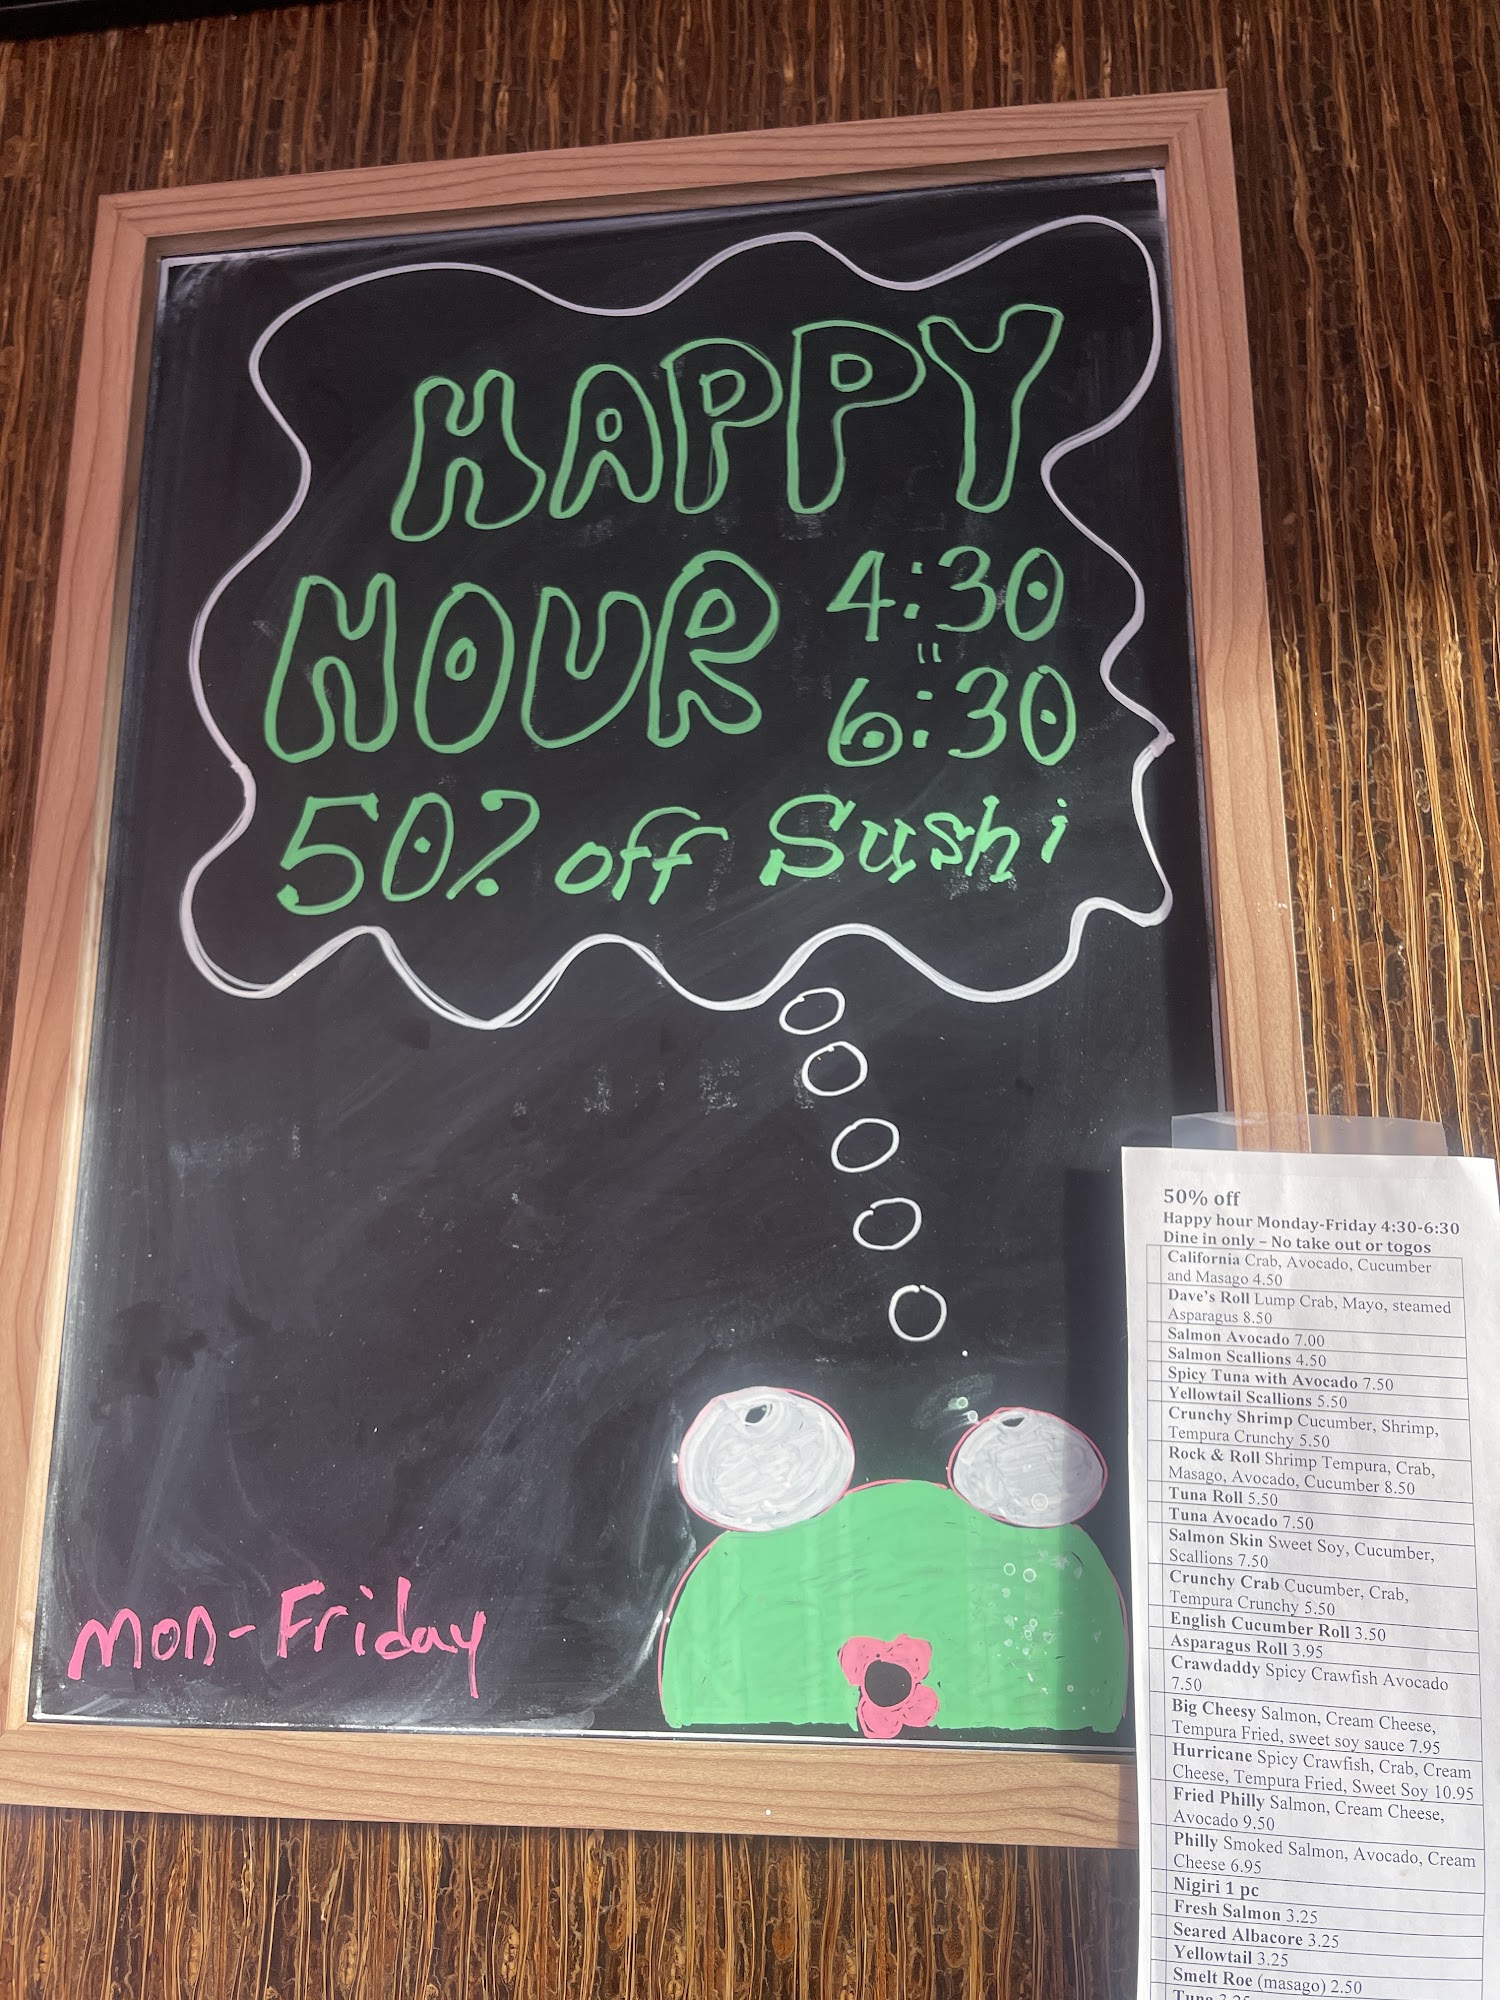 HAPPY
HOUR 4:30
"
6:30
50% off Sushi
Mon-Friday
50% off
Happy hour Monday-Friday 4:30-6:30
Dine in only – No take out or togos
California Crab, Avocado, Cucumber
and Masago 4.50
Dave's Roll Lump Crab, Mayo, steamed
Asparagus 8.50
Salmon Avocado 7.00
Salmon Scallions 4.50
Spicy Tuna with Avocado 7.50
Yellowtail Scallions 5.50
Crunchy Shrimp Cucumber, Shrimp,
Tempura Crunchy 5.50
Rock & Roll Shrimp Tempura, Crab,
Masago, Avocado, Cucumber 8.50
Tuna Roll 5.50
Tuna Avocado 7.50
Salmon Skin Sweet Soy, Cucumber,
Scallions 7.50
Crunchy Crab Cucumber, Crab,
Tempura Crunchy 5.50
English Cucumber Roll 3.50
Asparagus Roll 3.95
Crawdaddy Spicy Crawfish Avocado
7.50
Big Cheesy Salmon, Cream Cheese,
Tempura Fried, sweet soy sauce 7.95
Hurricane Spicy Crawfish, Crab, Cream
Cheese, Tempura Fried, Sweet Soy 10.95
Fried Philly Salmon, Cream Cheese,
Avocado 9.50
Philly Smoked Salmon, Avocado, Cream
Cheese 6.95
Nigiri 1 pc
Fresh Salmon 3.25
Seared Albacore 3.25
Yellowtail 3.25
Smelt Roe (masago) 2.50
Tuna